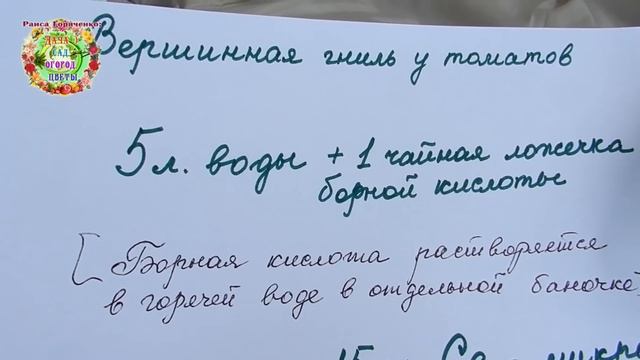 Раиса Горяченко:
ДАЧА
САД
ОГОРОД
ЦВЕТЫ
Вершинная гниль у томатов
5 л. воды + 1 чайная ложечка
борной кислоты
[ Борная кислота растворяется
в горячей воде в отдельной баночке]